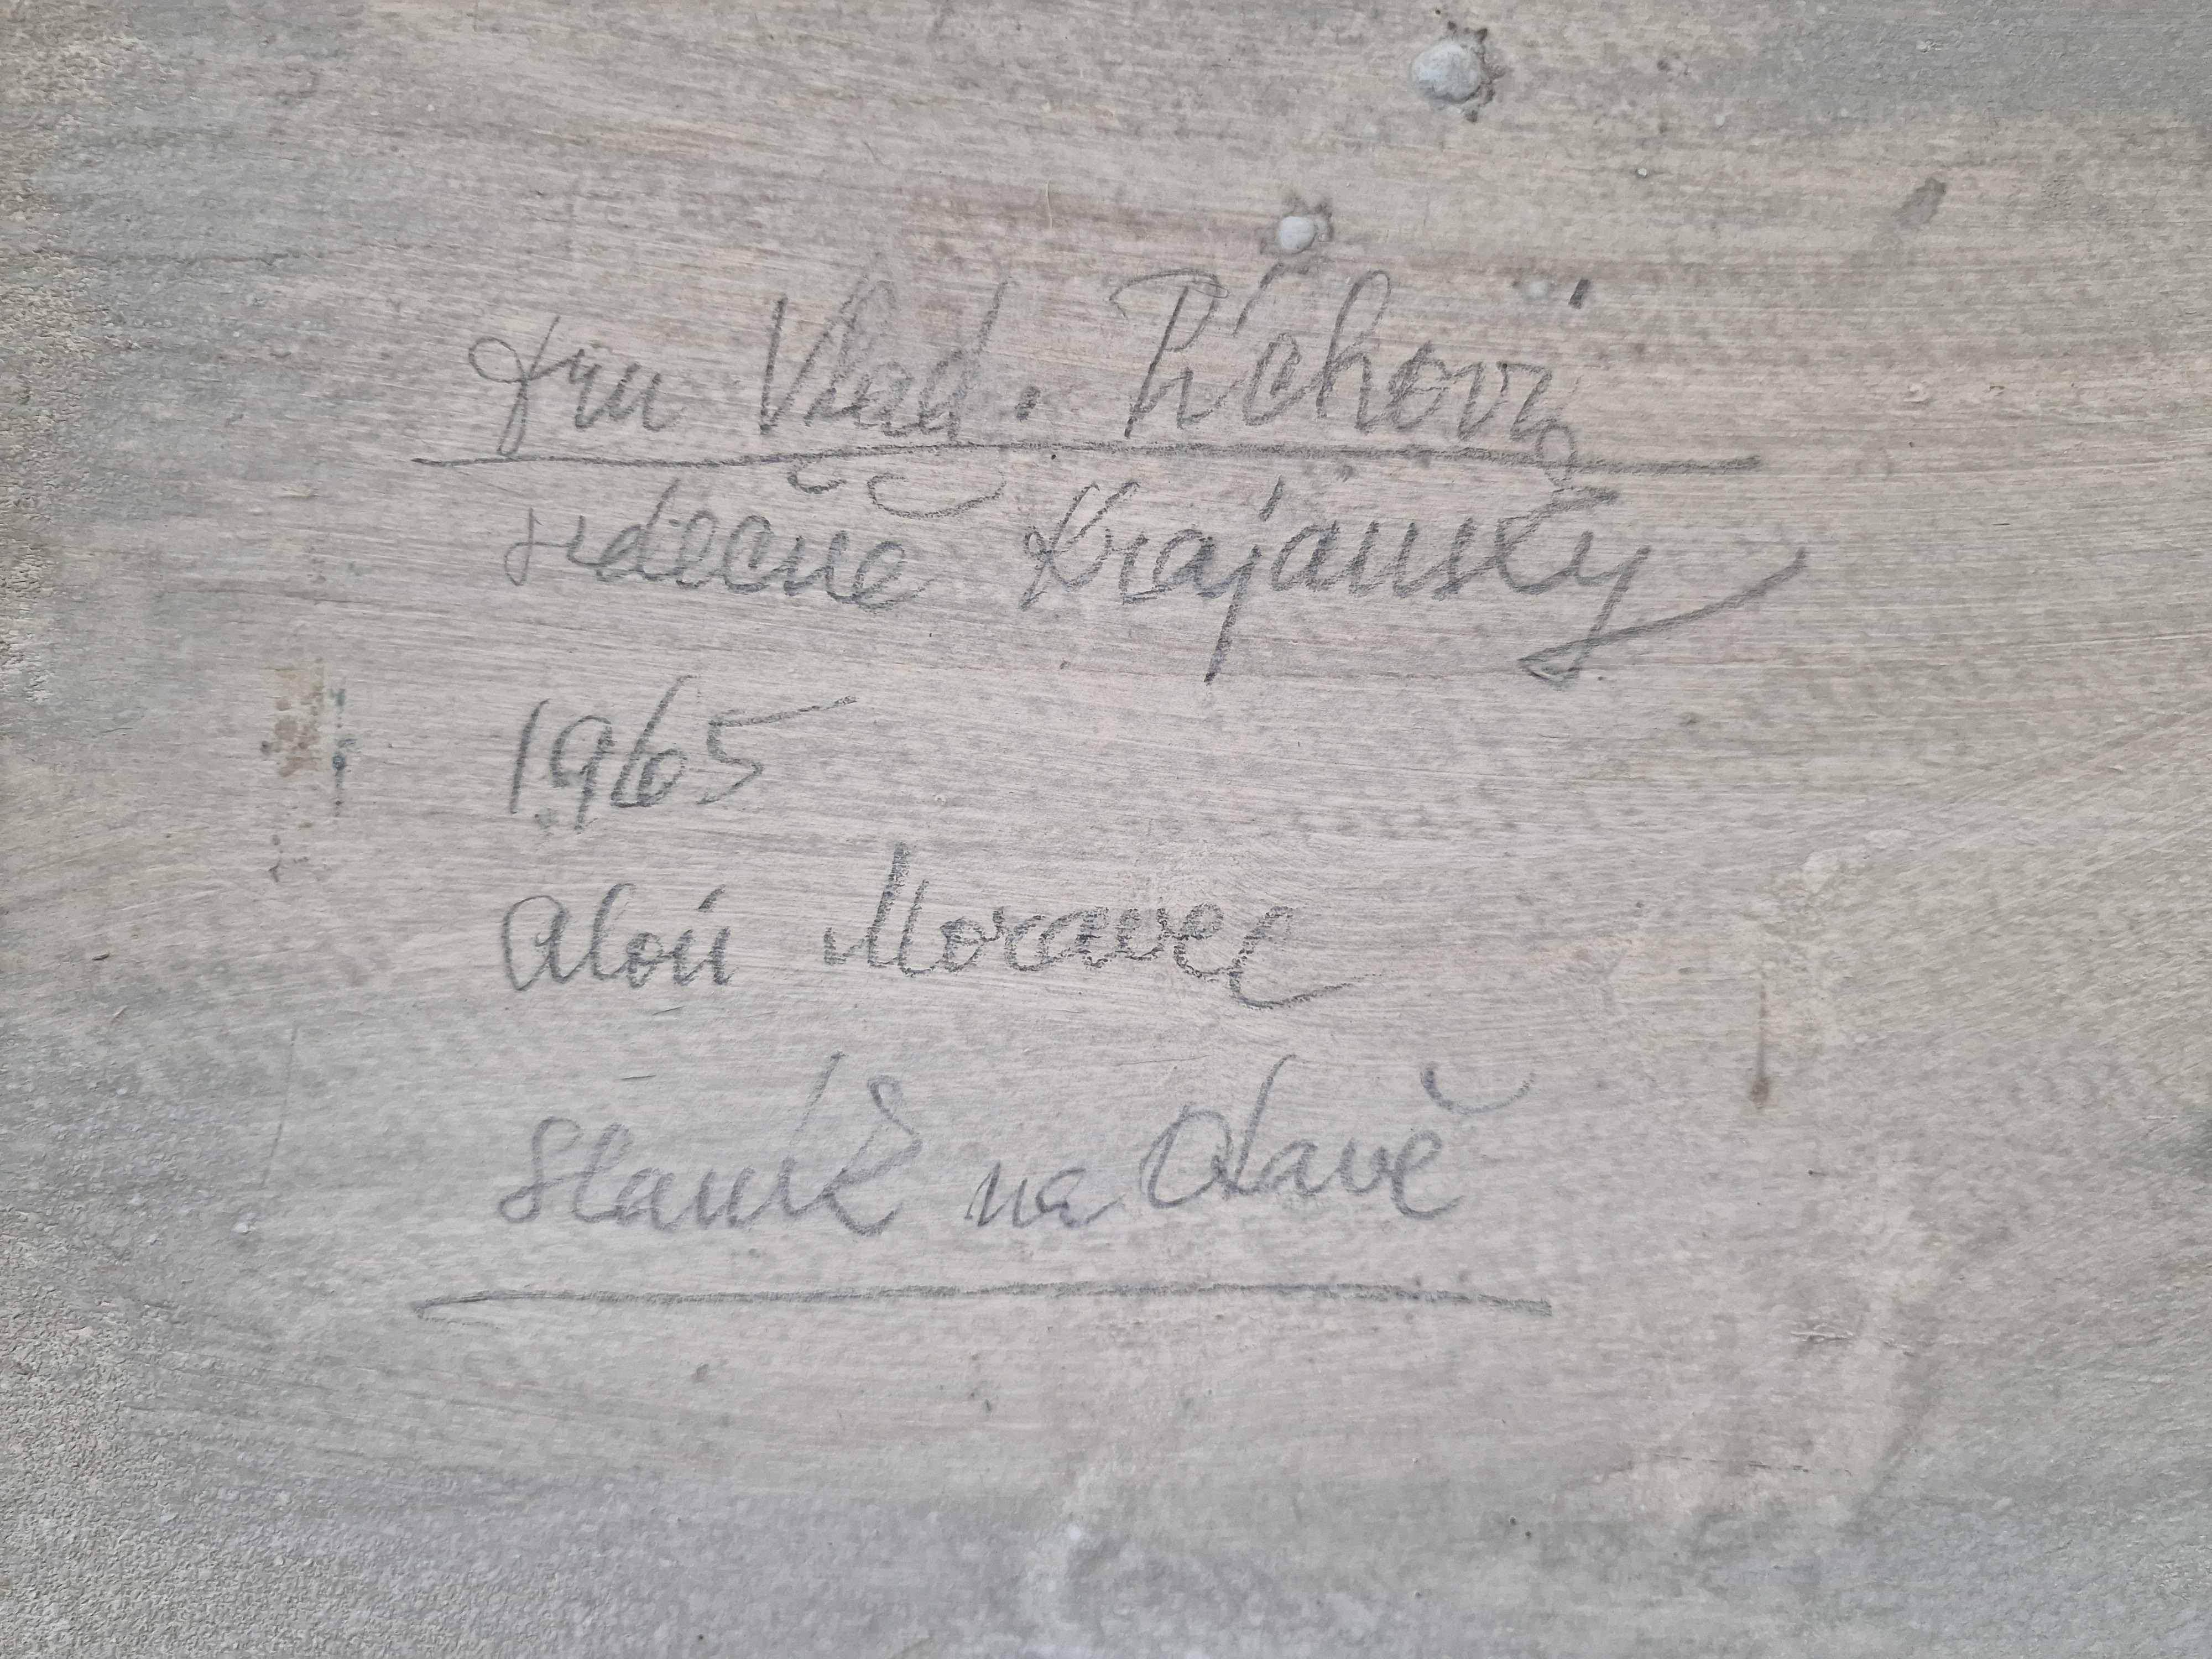 pnu Vlad. Píchovi
srdečně Krajánský
1965
Alois Moravec
Slaník na Otavě